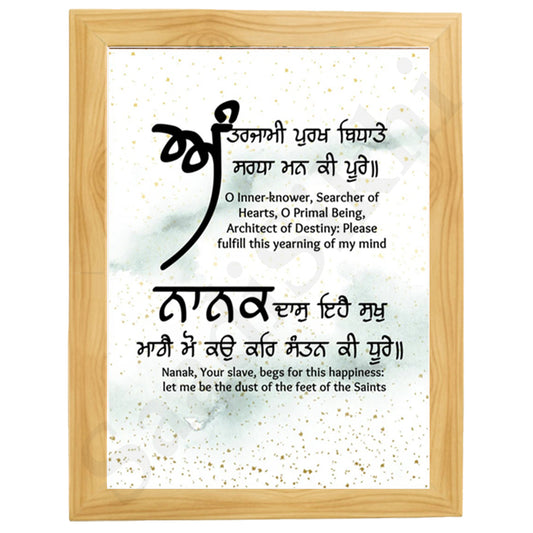 ਅੰਤਰਜਾਮੀ ਪੁਰਖ ਬਿਧਾਤੇ
ਸਰਧਾ ਮਨ ਕੀ ਪੂਰੇ॥
O Inner-knower, Searcher of
Hearts, O Primal Being,
Architect of Destiny: Please
fulfill this yearning of my mind
ਨਾਨਕ ਦਾਸੁ ਇਹੈ ਸੁਖੁ
ਮਾਗੈ ਮੋ ਕਉ ਕਰਿ ਸੰਤਨ ਕੀ ਧੂਰੇ॥
Nanak, Your slave, begs for this happiness:
let me be the dust of the feet of the Saints